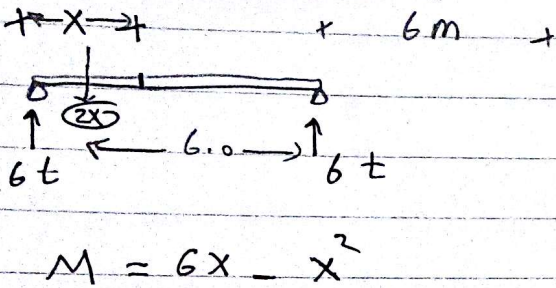 X 6 m
2X
6.0
6 t 6 t
M = 6X - X²